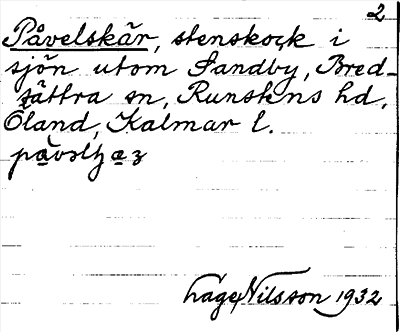 2
Påvelskär, stenskock i
sjön utom Sandby, Bred-
sättra sn, Runstens hd,
Öland, Kalmar l.
Tage Nilsson 1932